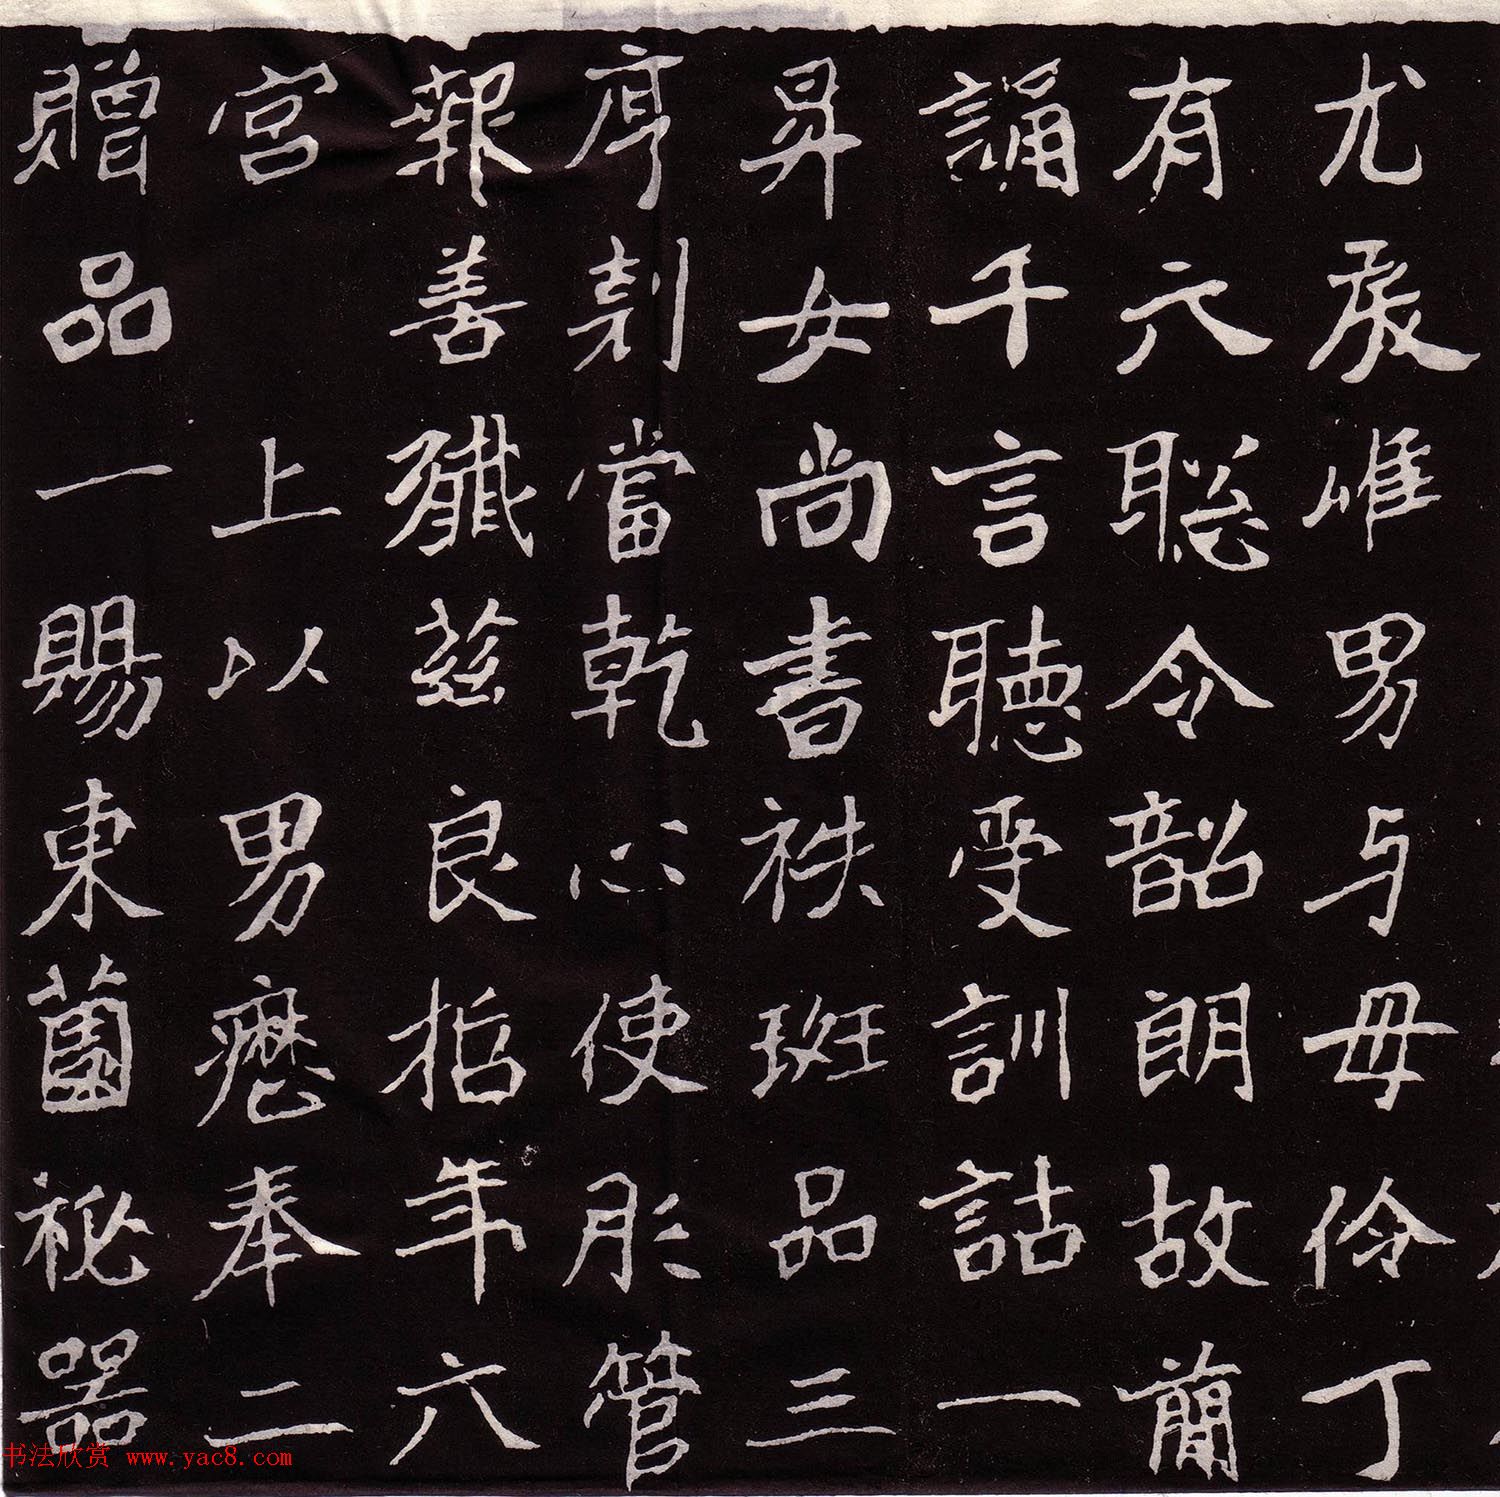 尤唯男与毋伶丁
有六聡令韶朗故蕳
誦千言聽受訓詁一
昇女尚書袟班品三
厚剋當乾心使肜管
報善殲茲良哲年六
宮上以男歷奉二
贈品一賜東薗祕器
书法欣赏 www.yac8.com